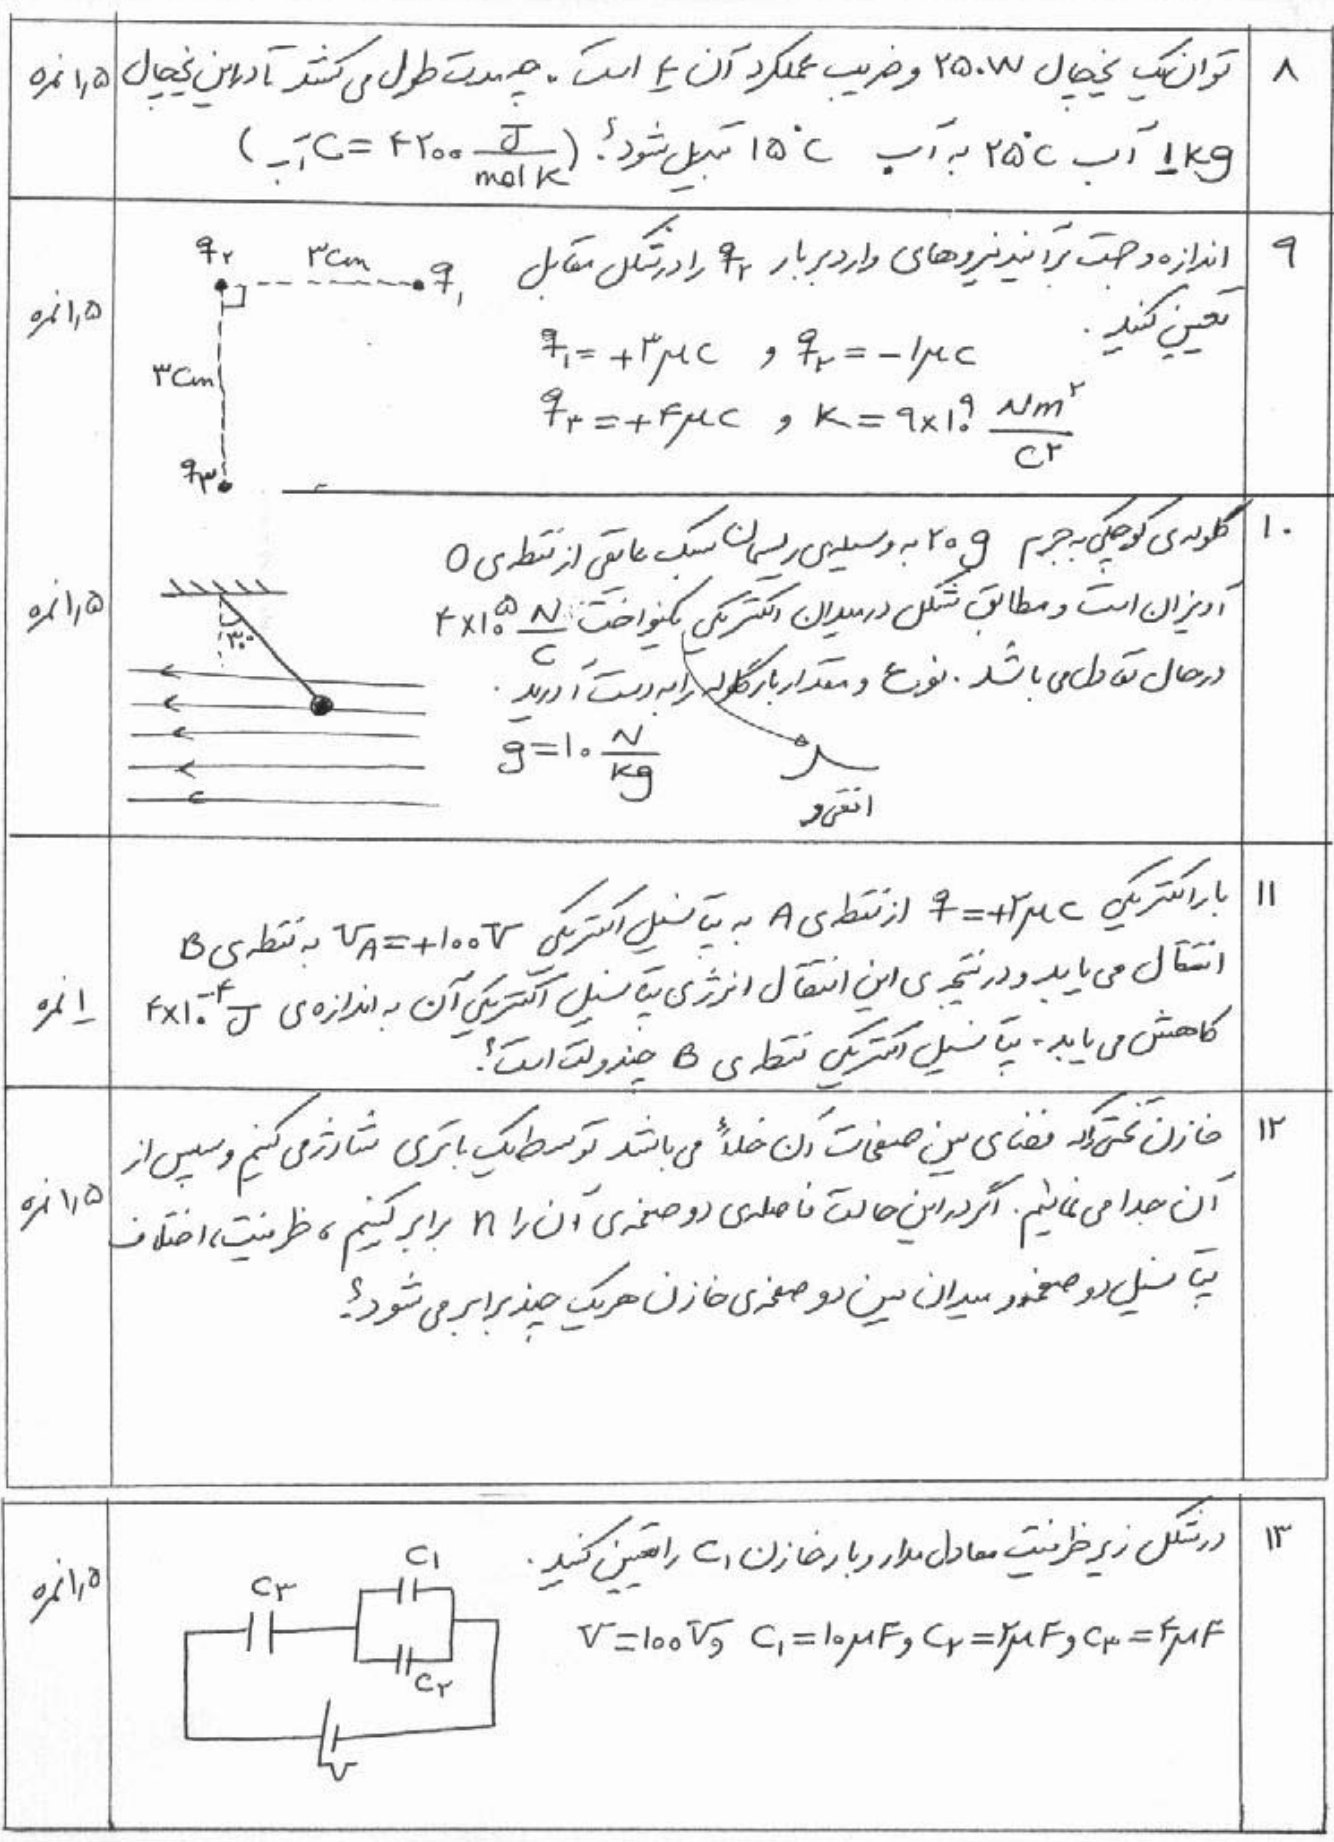 ۸ توان یک یخچال ۲۵۰W و ضریب عملکرد آن ۴ است. چه مدت طول می کشد تا در این یخچال ۱٫۵ نمره
۱kg آب ۲۵°C به آب ۱۵°C تبدیل شود؟ (C آب = ۴۲۰۰ J/mol K)
۹ اندازه و جهت برآیند نیروهای وارد بر بار q۲ را در شکل مقابل
تعیین کنید. ۱٫۵ نمره
q۱ = +۳μC و q۲ = -۱μC
q۳ = +۴μC و K = ۹×۱۰^۹ Nm^۲/C^۲
q۲ ۳Cm q۱
۳Cm
q۳
۱۰ گلوله ی کوچکی به جرم ۲۰g به وسیله ی ریسمان سبک عایقی از نقطه ی O
آویزان است و مطابق شکل در میدان الکتریکی یکنواخت ۴×۱۰^۵ N/C ۱٫۵ نمره
در حال تعادل می باشد. نوع و مقدار بار گلوله را به دست آورید.
g = ۱۰ N/kg
افقی و
۳۰°
۱۱ بار الکتریکی q = +۲μC از نقطه ی A به پتانسیل الکتریکی VA = +۱۰۰V به نقطه ی B
انتقال می یابد و در نتیجه ی این انتقال انرژی پتانسیل الکتریکی آن به اندازه ی ۴×۱۰^-۴ J ۱ نمره
کاهش می یابد. پتانسیل الکتریکی نقطه ی B چند ولت است؟
۱۲ خازن تختی که فضای بین صفحات آن خلأ می باشد توسط یک باتری شارژ می کنیم و سپس از
آن جدا می نمائیم. اگر در این حالت فاصله ی دو صفحه ی آن را n برابر کنیم، ظرفیت، اختلاف ۱٫۵ نمره
پتانسیل دو صفحه و میدان بین دو صفحه ی خازن هریک چند برابر می شود؟
۱۳ در شکل زیر ظرفیت معادل مدار و بار خازن C۱ را تعیین کنید. ۱٫۵ نمره
V = ۱۰۰V و C۱ = ۱۰μF و C۲ = ۲μF و C۳ = ۴μF
C۱
C۳
C۲
V